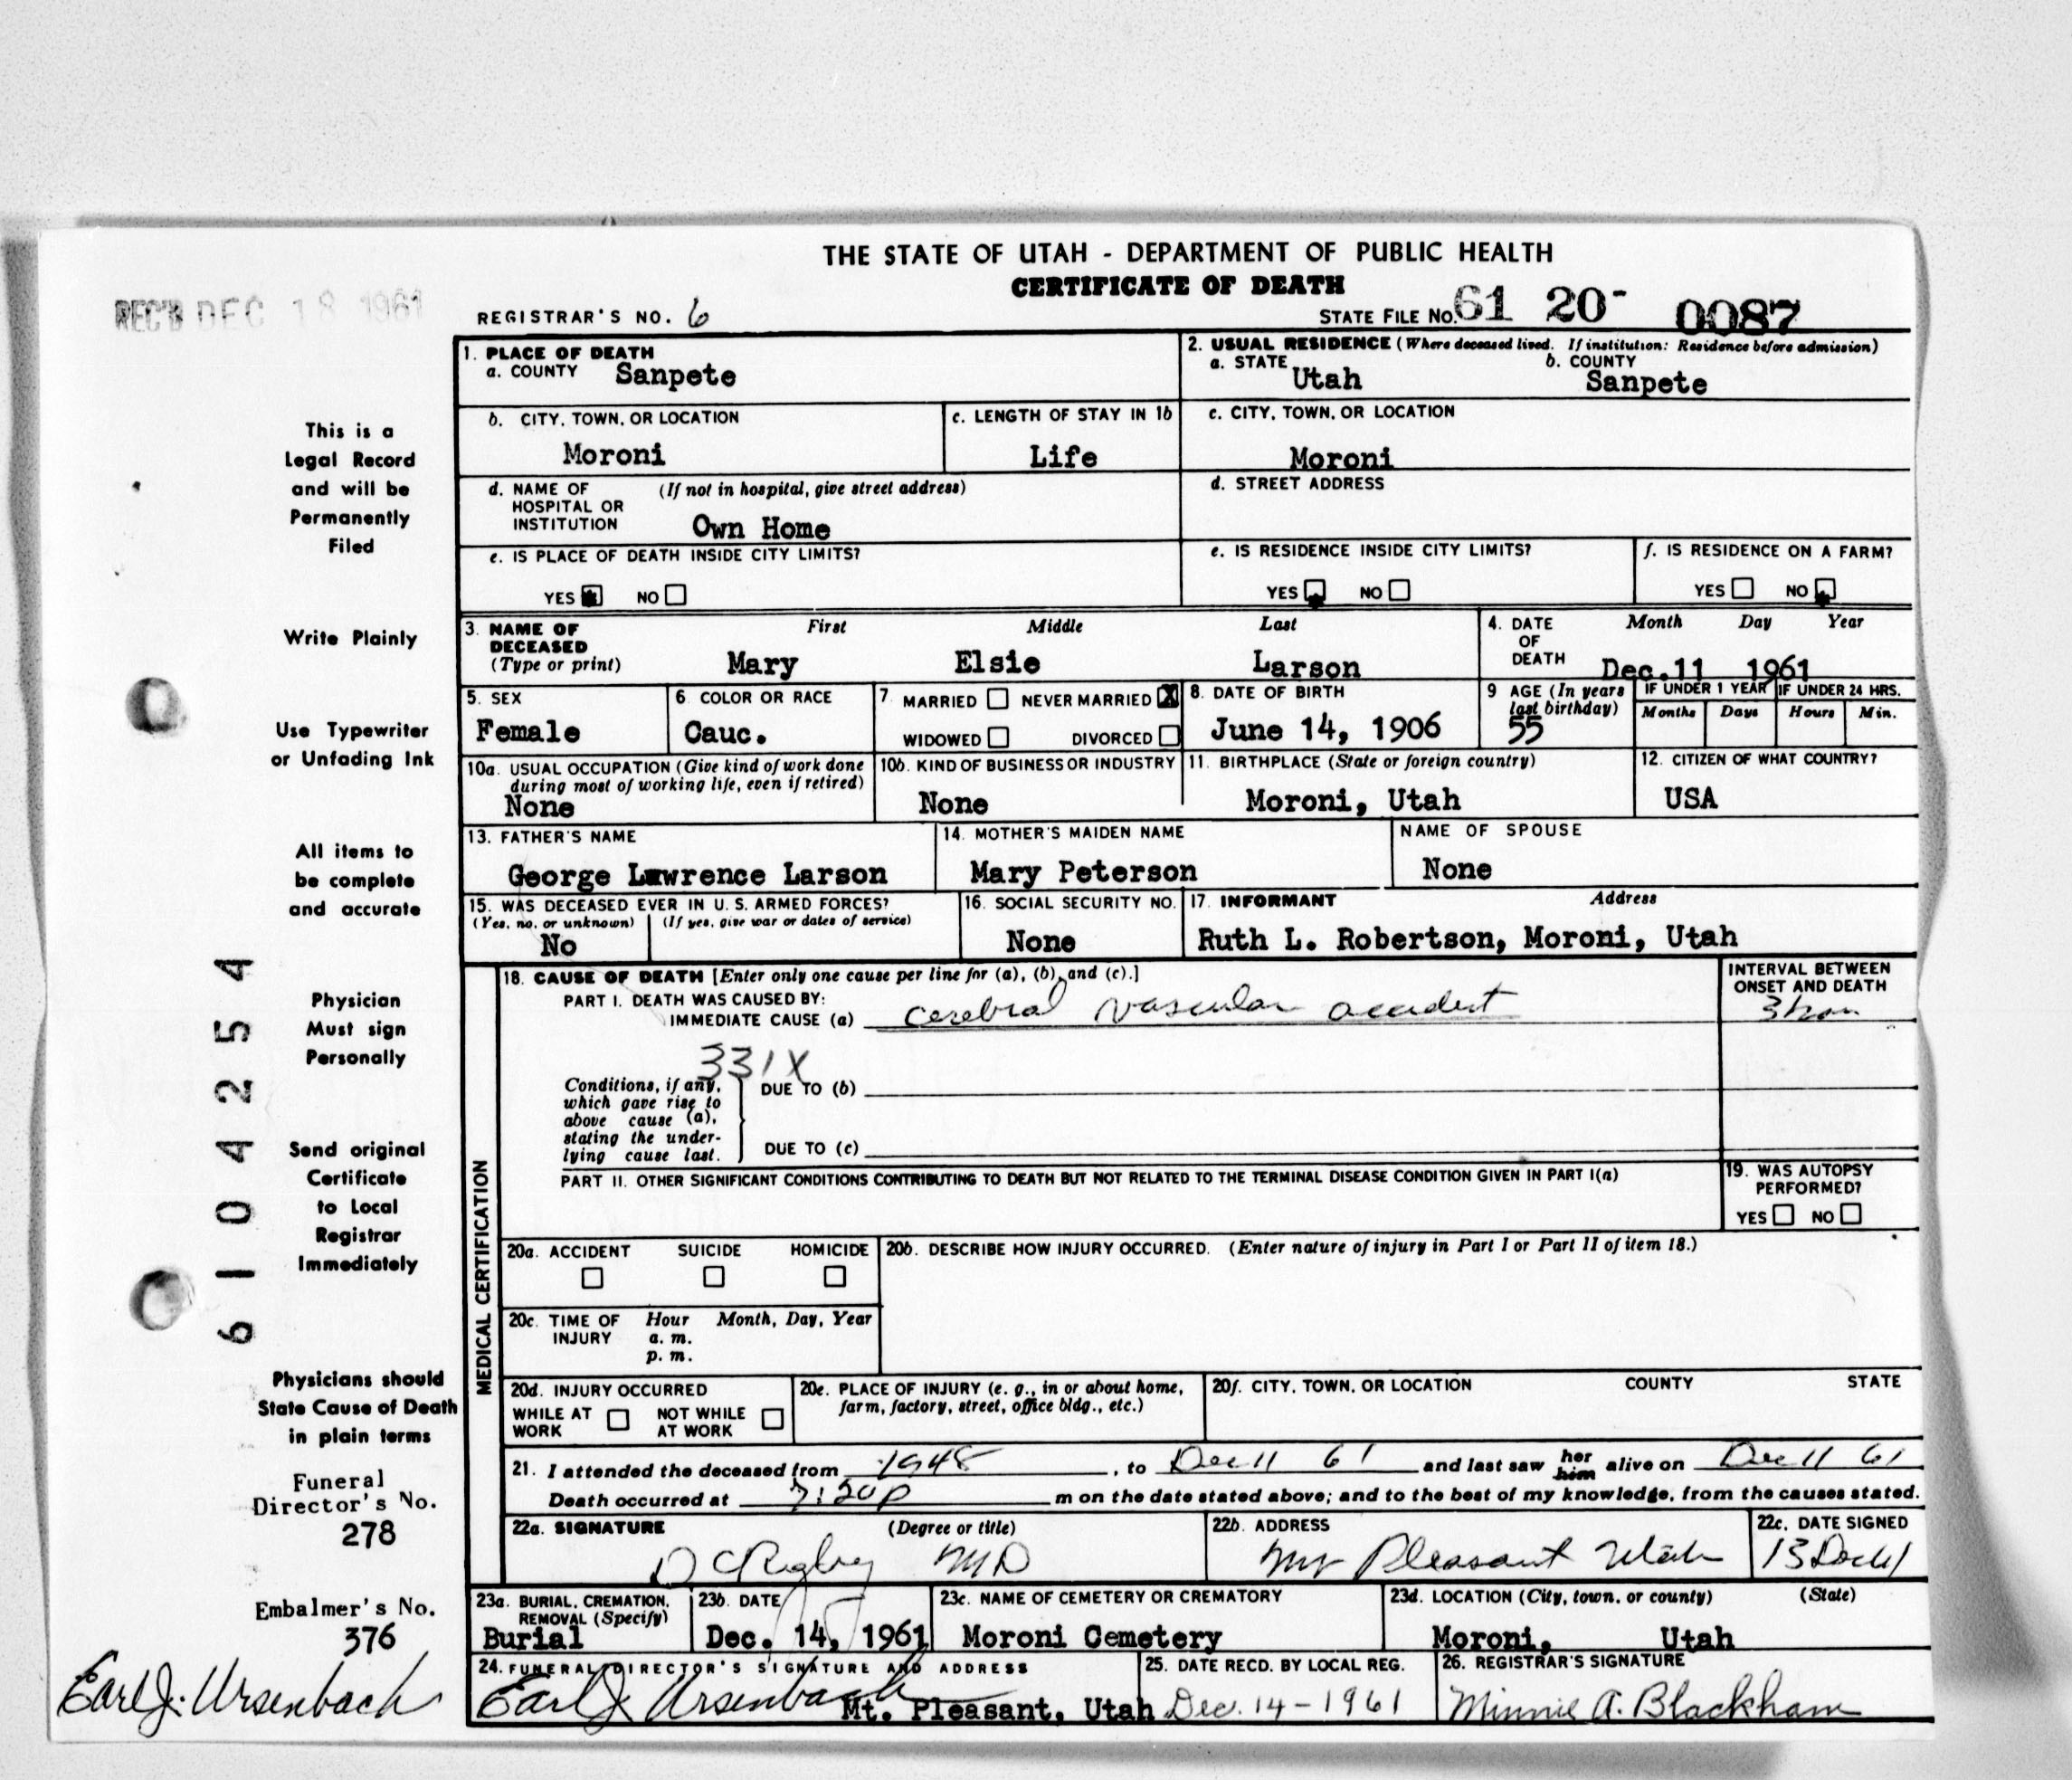 THE STATE OF UTAH - DEPARTMENT OF PUBLIC HEALTH
CERTIFICATE OF DEATH
REC'D DEC 18 1961
REGISTRAR'S NO. 6
STATE FILE NO. 61 20- 0087
1. PLACE OF DEATH
a. COUNTY Sanpete
2. USUAL RESIDENCE (Where deceased lived. If institution: Residence before admission)
a. STATE Utah b. COUNTY Sanpete
b. CITY, TOWN, OR LOCATION Moroni
c. LENGTH OF STAY IN 1b Life
c. CITY, TOWN, OR LOCATION Moroni
d. NAME OF HOSPITAL OR INSTITUTION (If not in hospital, give street address) Own Home
d. STREET ADDRESS
e. IS PLACE OF DEATH INSIDE CITY LIMITS?
YES NO
e. IS RESIDENCE INSIDE CITY LIMITS?
YES NO
f. IS RESIDENCE ON A FARM?
YES NO
3. NAME OF DECEASED (Type or print)
First Middle Last
Mary Elsie Larson
4. DATE OF DEATH Month Day Year
Dec.11 1961
5. SEX Female
6. COLOR OR RACE Cauc.
7 MARRIED NEVER MARRIED X
WIDOWED DIVORCED
8. DATE OF BIRTH June 14, 1906
9 AGE (In years last birthday) 55
IF UNDER 1 YEAR Months Days
IF UNDER 24 HRS. Hours Min.
10a. USUAL OCCUPATION (Give kind of work done during most of working life, even if retired) None
10b. KIND OF BUSINESS OR INDUSTRY None
11. BIRTHPLACE (State or foreign country) Moroni, Utah
12. CITIZEN OF WHAT COUNTRY? USA
13. FATHER'S NAME George Lawrence Larson
14. MOTHER'S MAIDEN NAME Mary Peterson
NAME OF SPOUSE None
15. WAS DECEASED EVER IN U.S. ARMED FORCES?
(Yes, no, or unknown) No (If yes, give war or dates of service)
16. SOCIAL SECURITY NO. None
17. INFORMANT Address
Ruth L. Robertson, Moroni, Utah
MEDICAL CERTIFICATION
18. CAUSE OF DEATH [Enter only one cause per line for (a), (b), and (c).]
PART I. DEATH WAS CAUSED BY:
IMMEDIATE CAUSE (a) cerebral vascular accident
INTERVAL BETWEEN ONSET AND DEATH
331X
Conditions, if any, which gave rise to above cause (a), stating the underlying cause last.
DUE TO (b)
DUE TO (c)
PART II. OTHER SIGNIFICANT CONDITIONS CONTRIBUTING TO DEATH BUT NOT RELATED TO THE TERMINAL DISEASE CONDITION GIVEN IN PART I(a)
19. WAS AUTOPSY PERFORMED?
YES NO
20a. ACCIDENT SUICIDE HOMICIDE
20b. DESCRIBE HOW INJURY OCCURRED. (Enter nature of injury in Part I or Part II of item 18.)
20c. TIME OF INJURY Hour Month, Day, Year
a. m.
p. m.
20d. INJURY OCCURRED
WHILE AT WORK NOT WHILE AT WORK
20e. PLACE OF INJURY (e. g., in or about home, farm, factory, street, office bldg., etc.)
20f. CITY, TOWN, OR LOCATION COUNTY STATE
21. I attended the deceased from 1948, to Dec 11 61 and last saw her him alive on Dec 11 61
Death occurred at 7:20p m on the date stated above; and to the best of my knowledge, from the causes stated.
22a. SIGNATURE (Degree or title)
D C Rigby MD
22b. ADDRESS
Mt Pleasant Utah
22c. DATE SIGNED
13 Dec 61
23a. BURIAL, CREMATION, REMOVAL (Specify) Burial
23b. DATE Dec. 14, 1961
23c. NAME OF CEMETERY OR CREMATORY Moroni Cemetery
23d. LOCATION (City, town, or county) (State)
Moroni, Utah
24. FUNERAL DIRECTOR'S SIGNATURE AND ADDRESS
Earl J. Ursenbach Mt. Pleasant, Utah
25. DATE RECD. BY LOCAL REG.
Dec. 14-1961
26. REGISTRAR'S SIGNATURE
Minnie A. Blackham
This is a
Legal Record
and will be
Permanently
Filed
Write Plainly
Use Typewriter
or Unfading Ink
All items to
be complete
and accurate
Physician
Must sign
Personally
Send original
Certificate
to Local
Registrar
Immediately
Physicians should
State Cause of Death
in plain terms
Funeral
Director's No.
278
Embalmer's No.
376
Earl J. Ursenbach
6104254